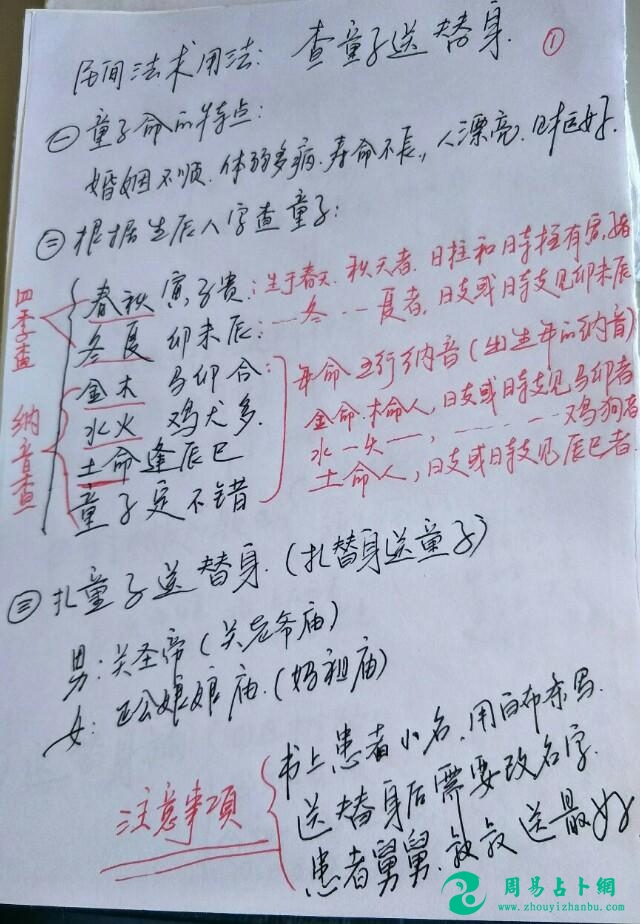 民间法术用法: 查童子送替身. ①
㊀童子命的特点:
婚姻不顺.体弱多病.寿命不长,人漂亮.
㊁根据生辰八字查童子:
四季查
春秋寅子贵:生于春天.秋天者.日柱和时柱有寅.子者
冬夏卯未辰:一冬一夏者,日支或日时支见卯未辰
纳音查
金木马卯合:年命五行纳音(出生年的纳音)
水火鸡犬多.金命.木命人,日支或日时支见马卯者
土命逢辰巳 水一火一,鸡狗者
童子定不错 土命人,日支或日时支见辰巳者.
㊂扎童子送替身.(扎替身送童子)
男:关圣帝(关老爷庙)
女:娘娘庙.(妈祖庙)
注意事項
书上患者小名,用白布条写.
送替身后需要改名字.
患者舅舅.叔叔送最好
周易占卜網
www.zhouyizhanbu.com